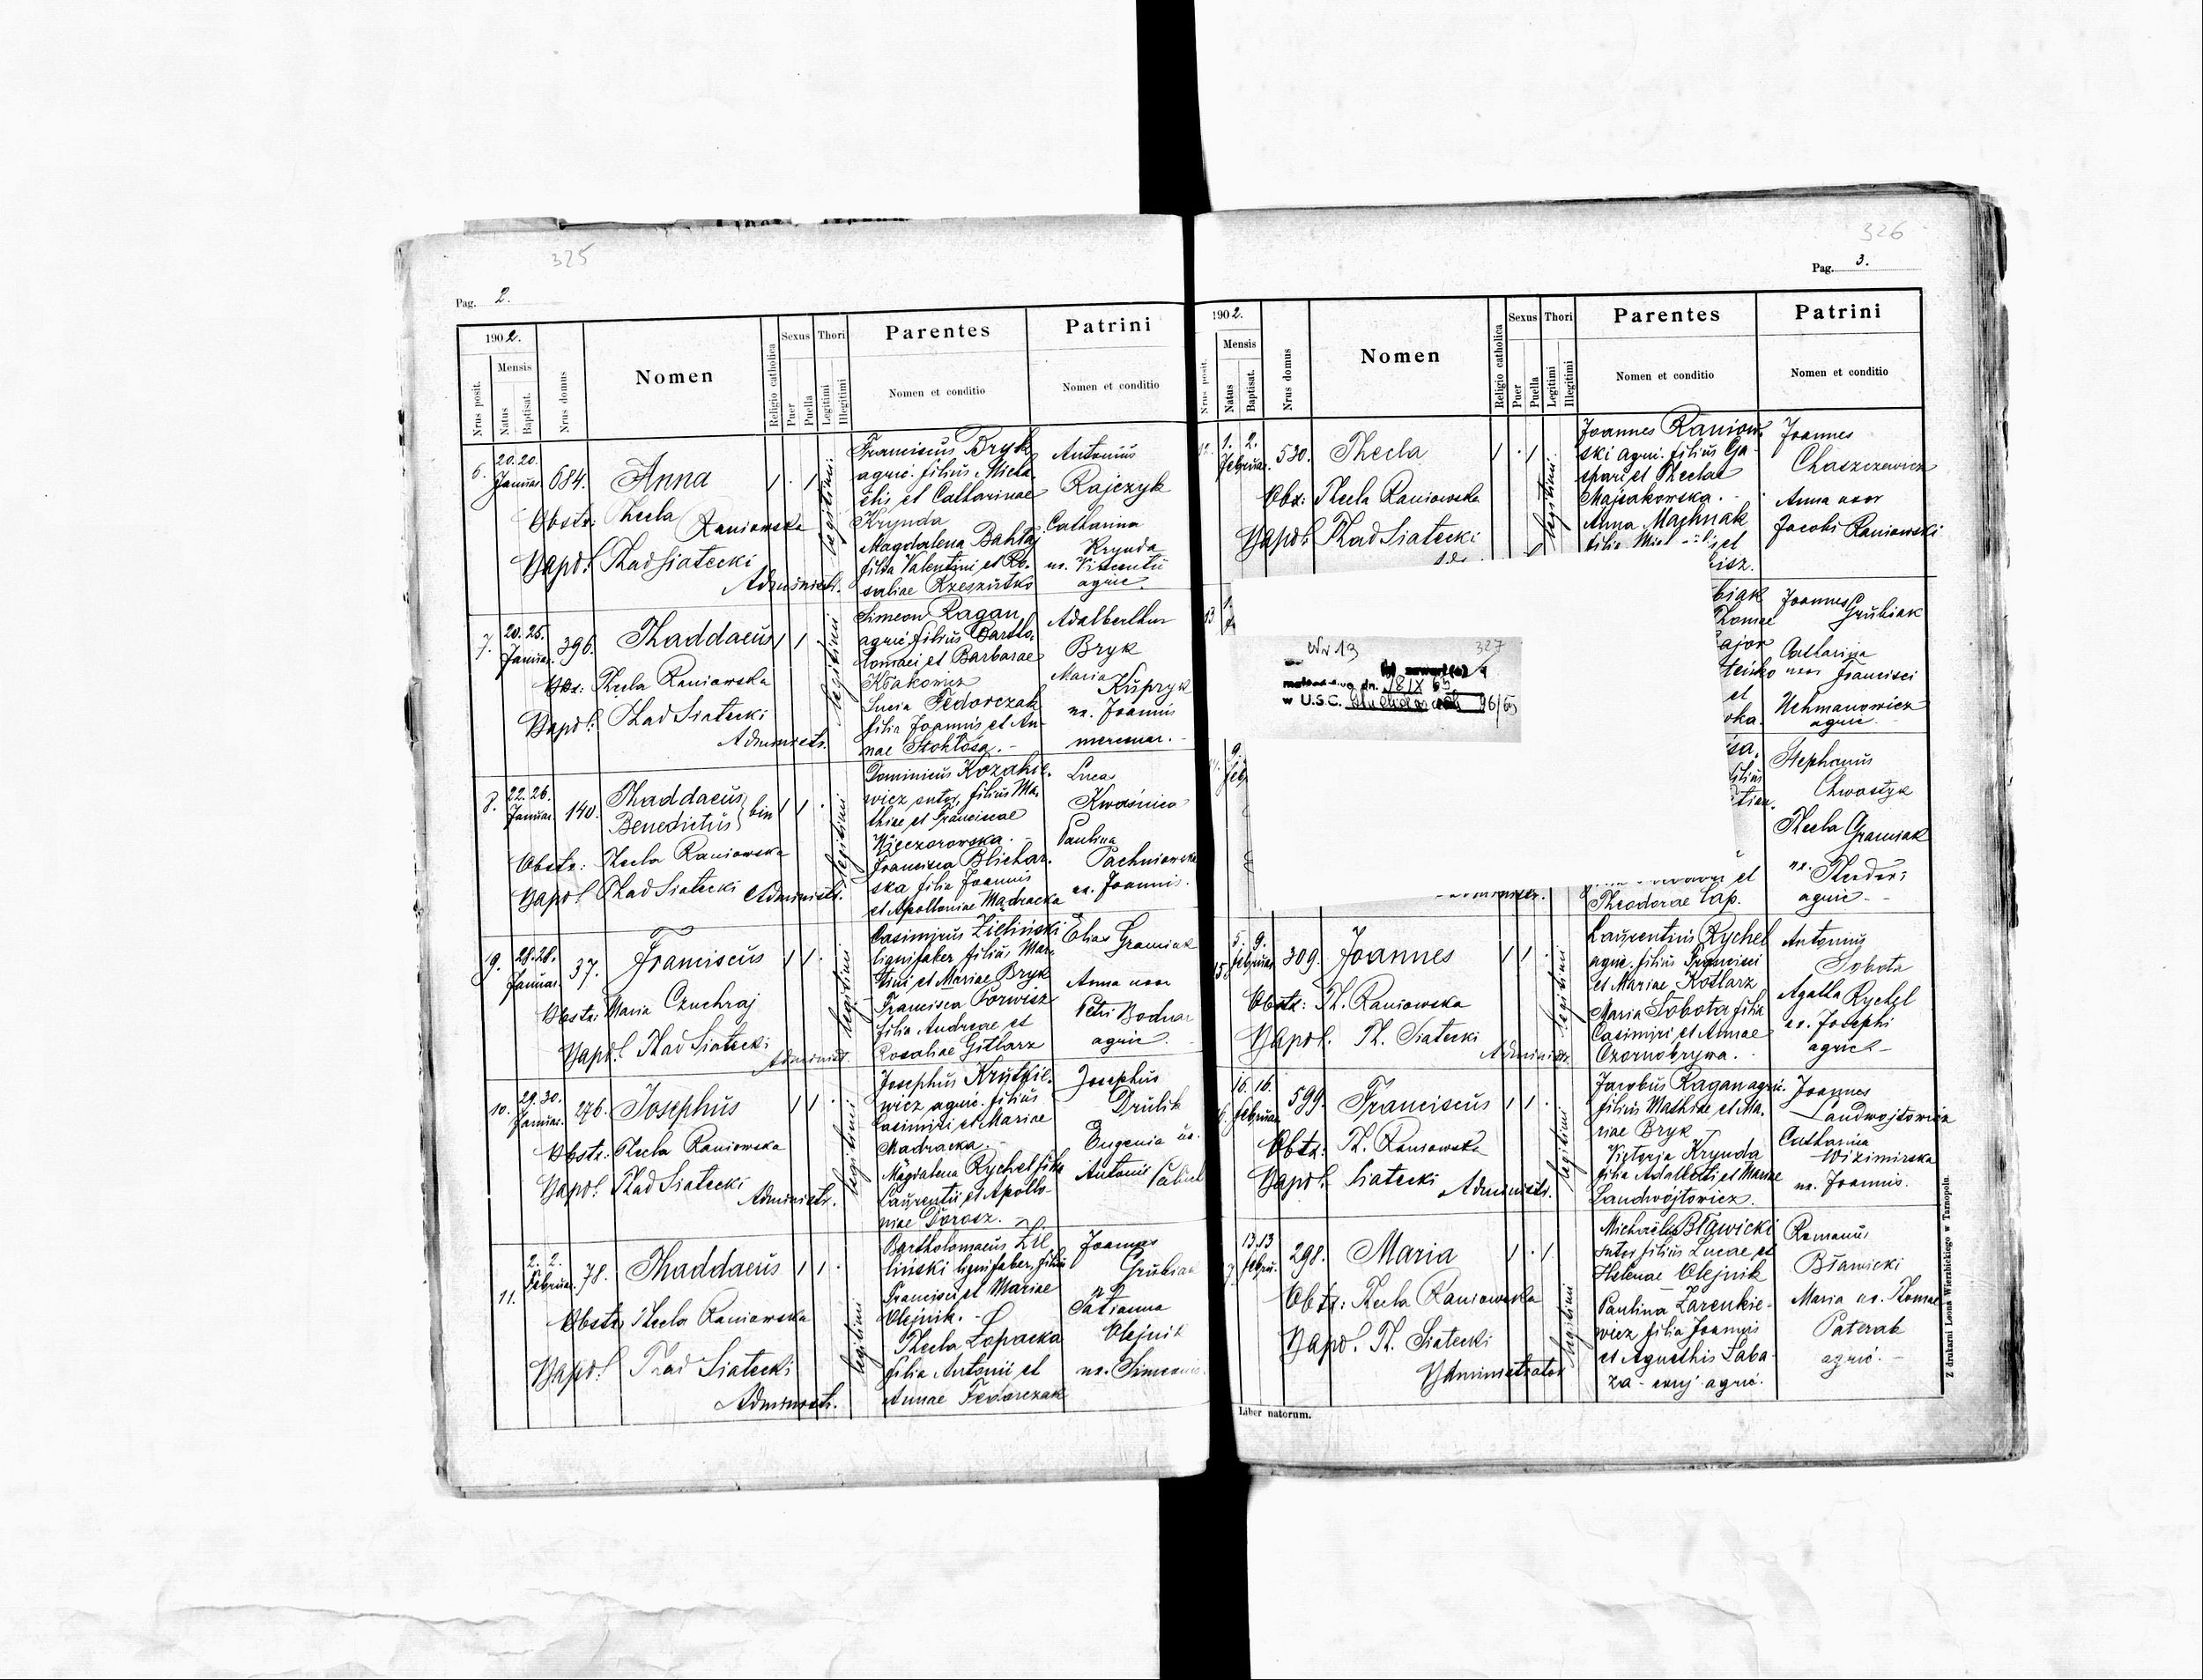 325
Pag. 2.
1902.
Nrus posit.
Mensis
Natus
Baptisat.
Nrus domus
Nomen
Religio catholica
Sexus
Puer
Puella
Thori
Legitimi
Illegitimi
Parentes
Nomen et conditio
Patrini
Nomen et conditio
6. 20. 20. Januar. 684. Anna
Obstr: Thecla Raniowska
Bapt. Thad Siatecki
Administr.
legitimi
Franciscus Bryk
agric. filius Micha-
elis et Catharinae
Krynda
Magdalena Bahtaj
filia Valentini et Ro-
saliae Rzeszutko
Antonius
Rajczyk
Catharina
Krynda
ux. Vincentii
agric.
7. 20. 25. Januar. 396. Thaddaeus
Obs: Thecla Raniowska
Bapt: Thad Siatecki
Administr.
legitimi
Simeon Ragan
agric. filius Bartho-
lomaei et Barbarae
Kłakowicz
Lucia Fedorczak
filia Joannis et An-
nae Stokłosa. -
Adalberthus
Bryk
Maria
Kupryk
ux. Joannis
mercenar. -
8. 22. 26. Januar. 140. Thaddaeus
Benedictus } bin
Obstr: Thecla Raniowska
Bapt Thad Siatecki Administr.
legitimi
Dominicus Kozakie-
wicz sutor, filius Ma-
thiae et Franciscae
Wieczorowska. -
Francisca Blichar-
ska filia Joannis
et Apolloniae Madracka
Lucas
Kwaśnica
Paulina
Pachniowska
ux. Joannis.
9. 28. 28. Januar. 37. Franciscus
Obstr: Maria Czuchraj
Bapt. Thad Siatecki
Administ.
legitimi
Casimirus Zieliński
lignifaber filius Mar-
tini et Mariae Bryk
Francisca Porwisz
filia Andreae et
Rosaliae Gitlarz
Elias Gramiak
Anna uxor
Petri Bodnar
agric.
10. 29. 30. Januar. 276. Josephus
Obstr: Thecla Raniowska
Bapt. Thad Siatecki
Administr.
legitimi
Josephus Krutkie-
wicz agric. filius
Casimiri et Mariae
Madracka. -
Magdalena Rychel filia
Laurentii et Apollo-
niae Dorosz. -
Josephus
Drulik
Eugenia ux.
Antonii
11. 2. 2. Februar. 78. Thaddaeus
Obstr. Thecla Raniowska
Bapt. Thad Siatecki
Administr.
legitimi
Bartholomaeus Zie-
liński lignifaber, filius
Francisci et Mariae
Olejnik. -
Thecla Łopacka
filia Antonii et
Annae Fedorczak
Joannes
Grubiak
Tatianna
Olejnik
ux. Simeonis
326
Pag. 3.
1902.
Nrus posit.
Mensis
Natus
Baptisat.
Nrus domus
Nomen
Religio catholica
Sexus
Puer
Puella
Thori
Legitimi
Illegitimi
Parentes
Nomen et conditio
Patrini
Nomen et conditio
12. 1. 2. Februar. 530. Thecla
Obs: Thecla Raniowska
Bapt. Thad Siatecki
legitimi
Joannes Raniow-
ski agric. filius Ga-
spari et Theclae
Majsakowska. -
Anna Majhnak
Joannes
Chaszczewicz
Anna uxor
Jacobi Raniowski
13
Nr 13 327
dn. 18 IX 65
w U.S.C. 96/65
biak
Tomae
et
Joannes Grubiak
Catharina
uxor Francisci
Uchmanowicz
agric. -
Stephanus
Chwostyk
Thecla Gramiak
ux. Theodori
agric. -
et
Theodorae Cap.
15. 5. 9. Februar. 309. Joannes
Obstr: Th. Raniowska
Bapt. Th. Siatecki
Administr.
legitimi
Laurentius Rychel
agric. filius Francisci
et Mariae Kotlarz
Maria Sobota filia
Casimiri et Annae
Czornobrywa. -
Antonius
Sobota
Agatha Rychel
ux. Josephi
agric -
16. 16. Februar. 599. Franciscus
Obstr: Th. Raniowska
Bapt. Siatecki Administr.
legitimi
Jacobus Ragan agric.
filius Mathiae et Ma-
riae Bryk -
Victoria Krynda
filia Adalberti et Mariae
Landwojtowicz.
Joannes
Landwojtowicz
Catharina
Wizimirska
ux. Joannis.
13. 13 Febru. 298. Maria
Obstr: Thecla Raniowska
Bapt. Th. Siatecki
Administrator
legitimi
Michaël Bławicki
sutor filius Lucae et
Helenae Olejnik
Paulina Zarenkie-
wicz filia Joannis
et Agnethis Saba-
Romanus
Bławicki
Maria ux. Thomae
Paterak
agric. -
Liber natorum.
Z drukarni Leona Wierzbickiego w Tarnopolu.